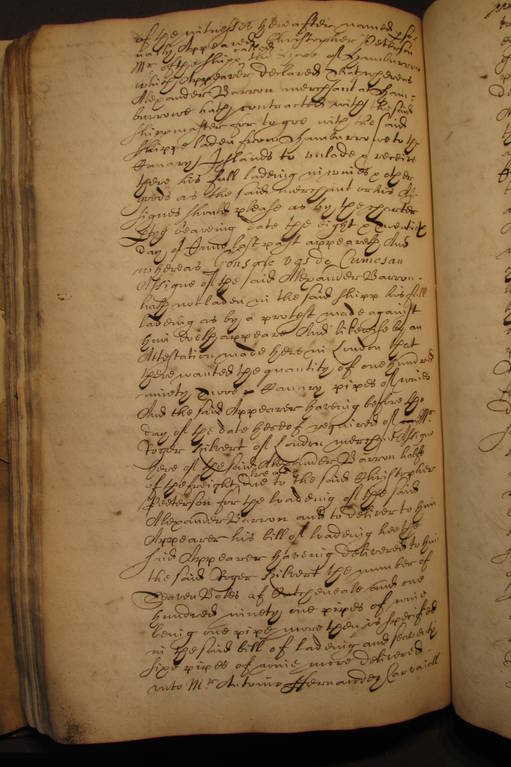 of the witnesses hereafter named
appeared Christopher Peterson
Mr of the shipp the of Hamburrow
which Appearer declared that whereas
Alexander Barron merchant at Ham=
burrowe hath contracted with the said
shipp master for to goe with the said
shippe laden from Hamburrowe to the
Canary Islands to unlade & receive
there his full lading in wines & other
goods as the said merchant or his As
signes should please as by the charter
party bearing date the eight & twentith
day of June last past appeareth And
whereas Gonsale vas de
Assigne of the said Alexander Barron
hath not laden in the said shipp his full
lading as by a protest made against
him doth appeare And likewise by an
Attestation made here in London that
there wanted the quantity of one hundred
ninety Canary pipes of wines
And the said Appearer having before the
day of the date hereof required of Mr
Roger Kilvert of London merchant Assigne
here of the said Alexander Barron
if the freight due to the said Christopher
Peeterson for the loadenig of the said
Alexander Barron and to deliver to him
Appearer his bill of loadenig hee the
said Appearer havenig delivered to him
the said Roger Kilvert the number of
seaven and one
hundred ninety one pipes of wine
being one pipe more then is specified
in the said bill of ladenig and seventy
sixe pipes of wine more delivered
unto Mr Antonio Hernandez Carvaiall